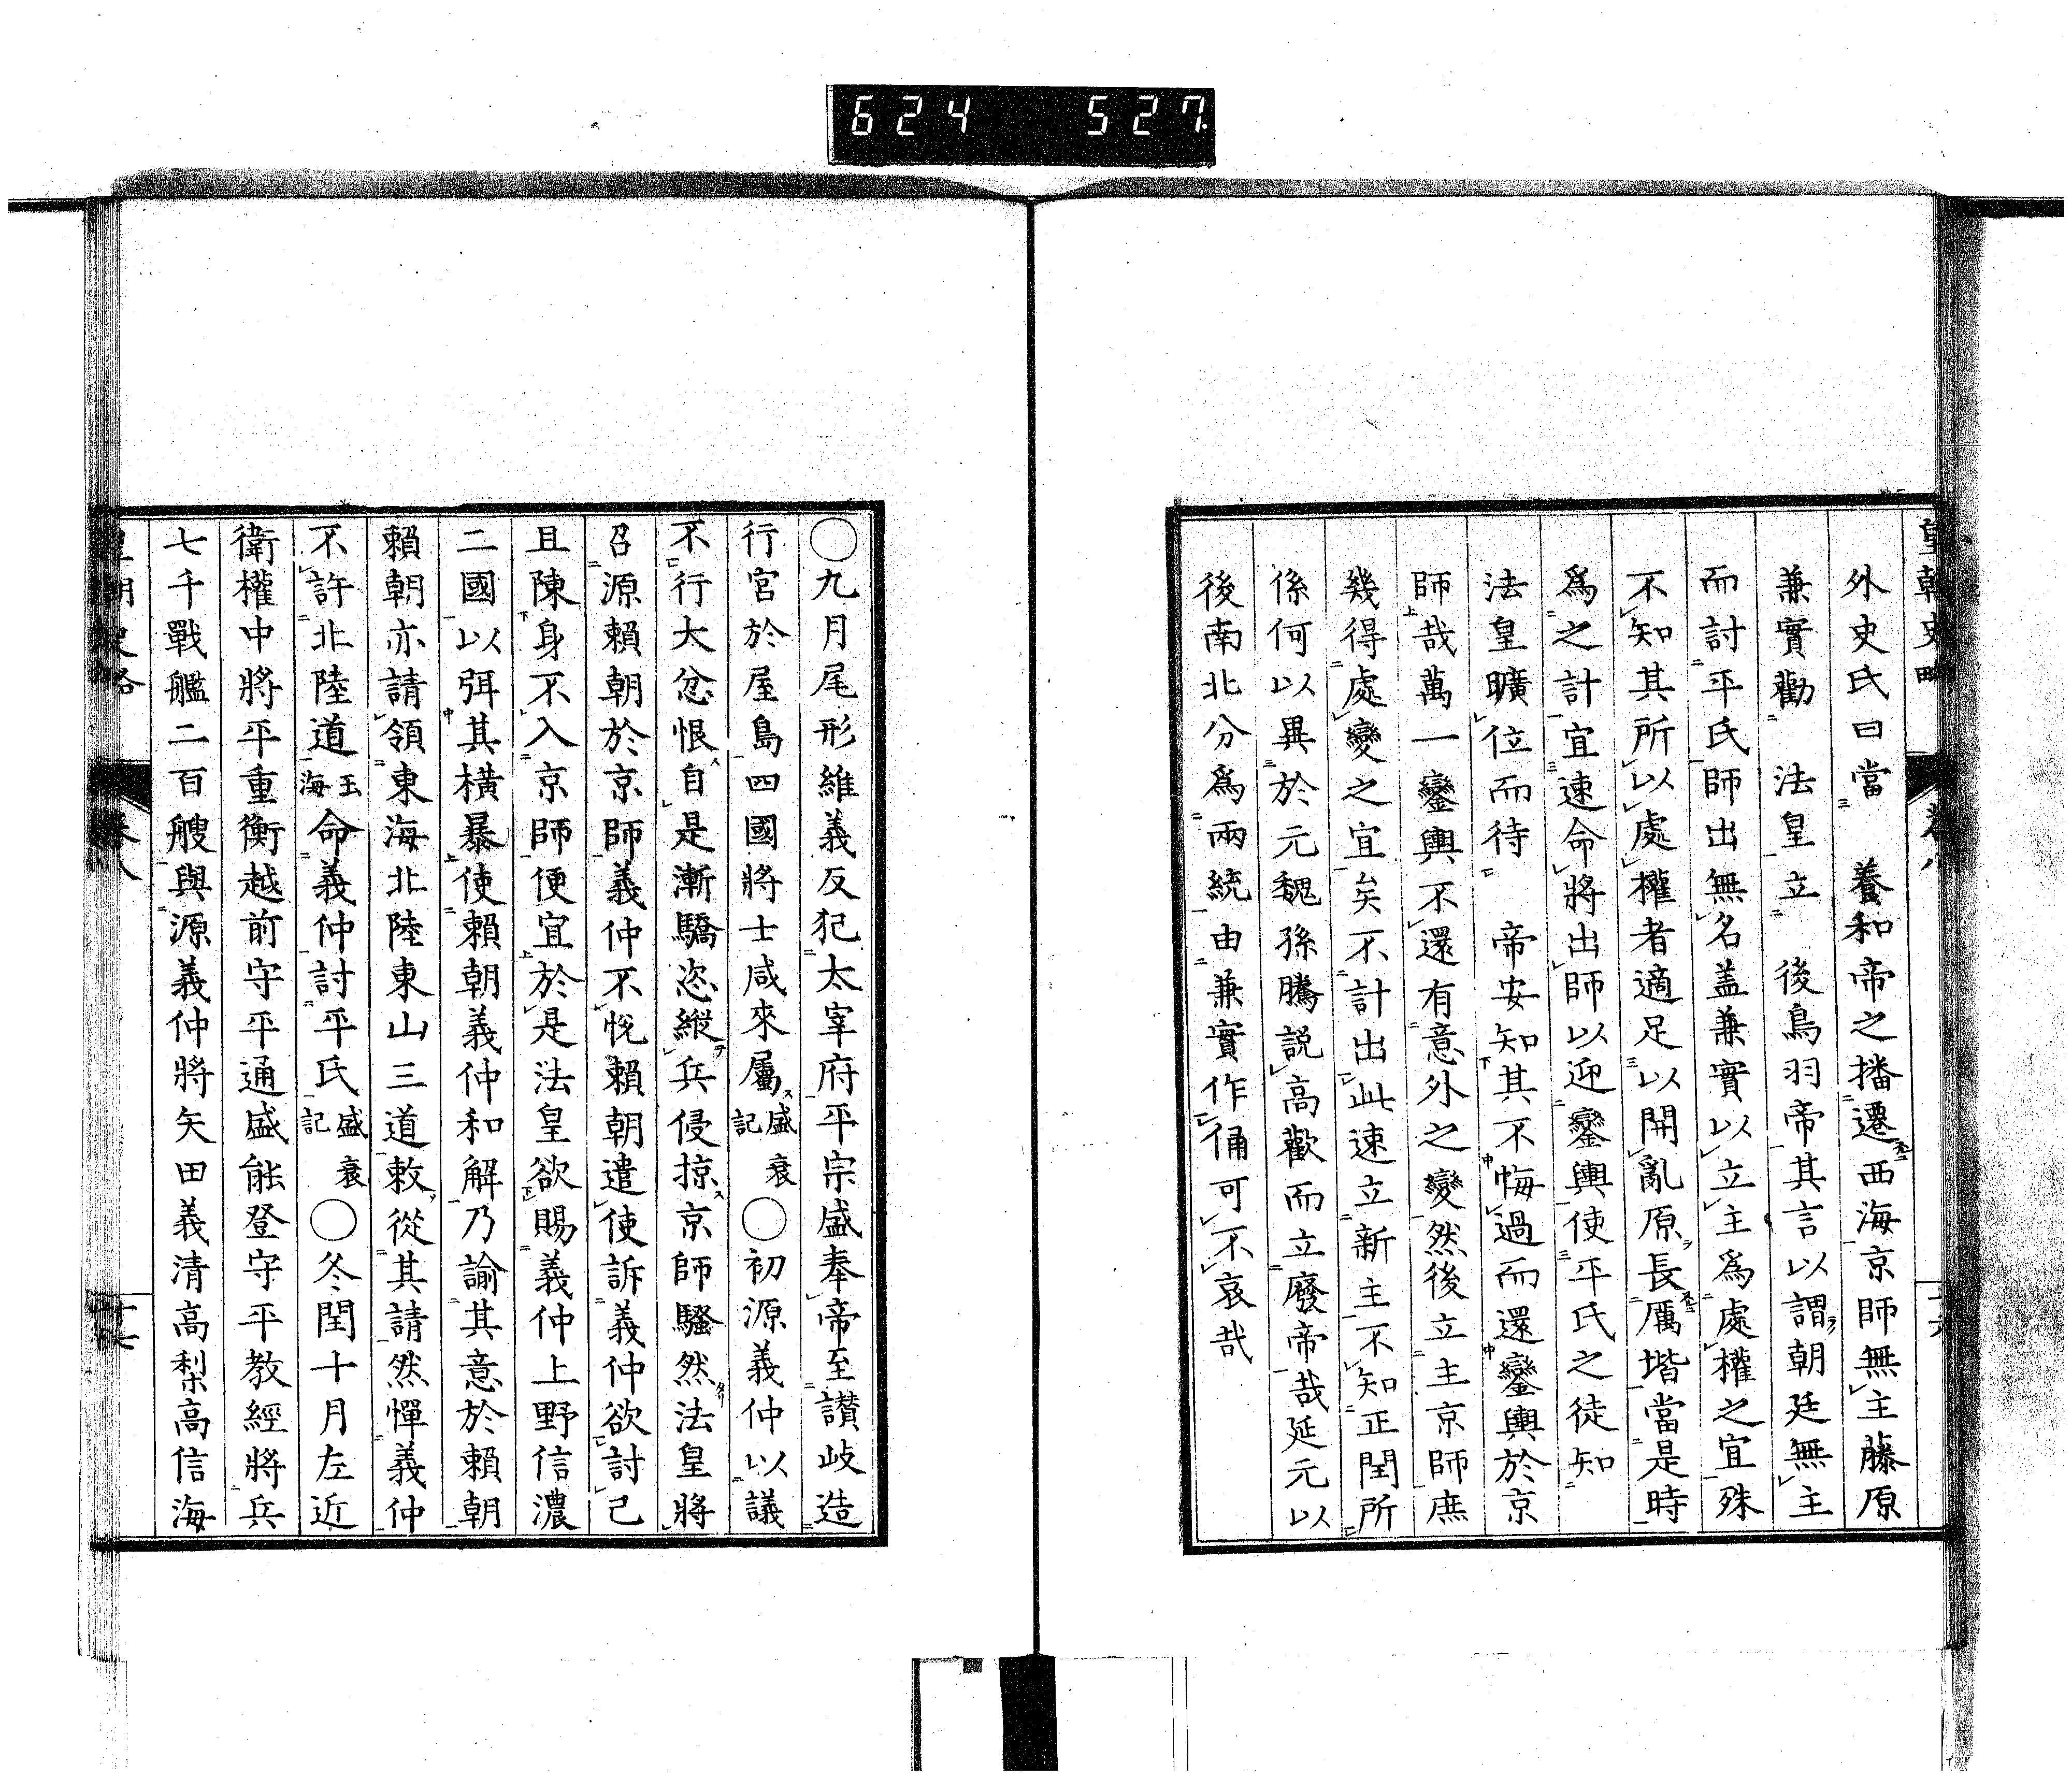 624 527.
皇朝史略 卷八
外史氏曰當 養和帝之播遷西海京師無主藤原
兼實勸 法皇立 後鳥羽帝其言以謂朝廷無主
而討平氏師出無名盖兼實以立主爲處權之宜殊
不知其所以處權者適足以開亂原長厲堦當是時
爲之計宜速命將出師以迎鑾輿使平氏之徒知
法皇曠位而待 帝安知其不悔過而還鑾輿於京
師哉萬一鑾輿不還有意外之變然後立主京師庶
幾得處變之宜矣不計出此速立新主不知正閏所
係何以異於元魏孫騰説高歡而立廢帝哉延元以
後南北分爲兩統由兼實作俑可不哀哉
○九月尾形維義反犯太宰府平宗盛奉帝至讃岐造
行宮於屋島四國將士咸來屬盛衰記○初源義仲以議
不行大忿恨自是漸驕恣縱兵侵掠京師騷然法皇將
召源賴朝於京師義仲不悅賴朝遣使訴義仲欲討己
且陳身不入京師便宜於是法皇欲賜義仲上野信濃
二國以弭其橫暴使賴朝義仲和解乃諭其意於賴朝
賴朝亦請領東海北陸東山三道敕從其請然憚義仲
不許北陸道玉海命義仲討平氏盛衰記○冬閏十月左近
衛權中將平重衡越前守平通盛能登守平教經將兵
七千戰艦二百艘與源義仲將矢田義清高梨高信海
皇朝史略 卷八 十七